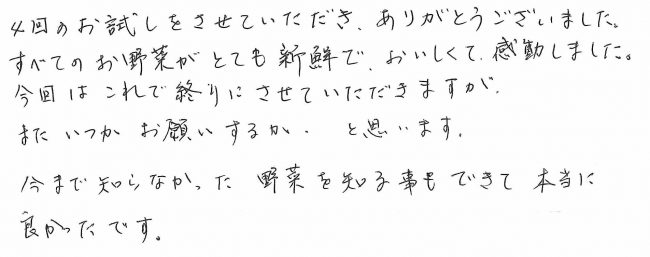 4回のお試しをさせていただき、ありがとうございました。
すべてのお野菜がとても新鮮で、おいしくて、感動しました。
今回はこれで終りにさせていただきますが、
またいつかお願いするか、と思います。
今まで知らなかった野菜を知る事もできて本当に
良かったです。